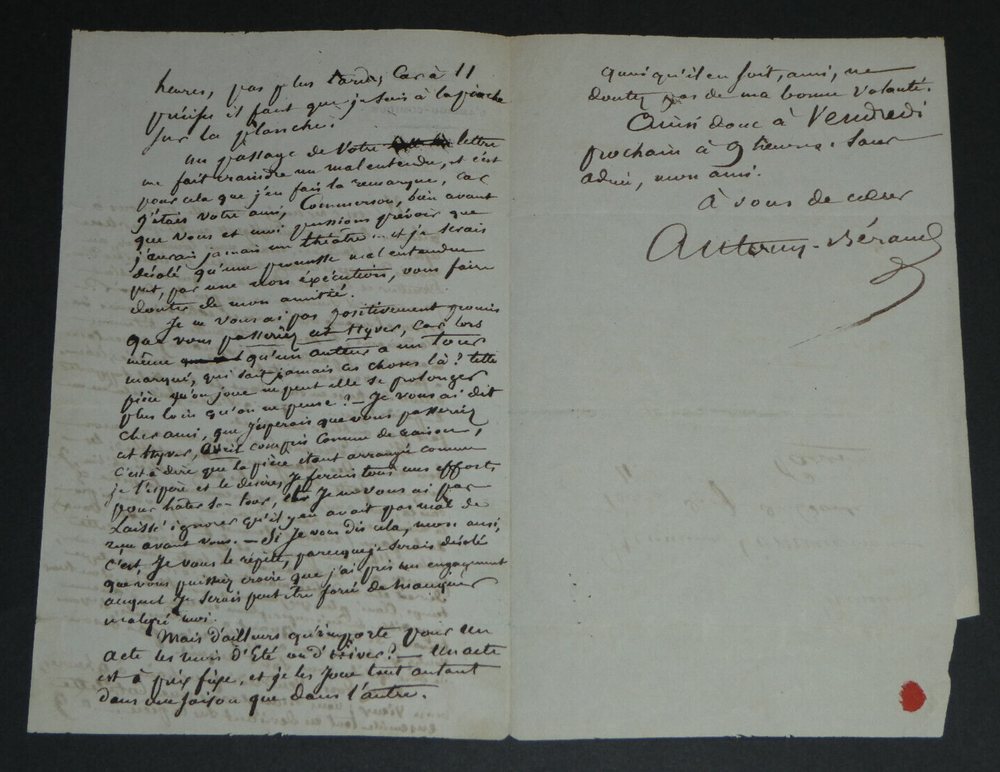 heures, pas plus tard, Car à 11
précises il faut que je sois à la pioche
sur la planche.
un passage de votre lettre
me fait craindre un malentendu, et c'est
pour cela que j'en fais la remarque, car
j'étais votre ami, Commerson, bien avant
que vous et moi pussions prévoir que
j'aurais jamais un théâtre... et je serais
désolé qu'une promesse mal entendue
put, par une non exécution, vous faire
douter de mon amitié.
Je ne vous ai pas positivement promis
que vous passeriez cet Hyver, car lors
même qu'un auteur a un tour
marqué, qui sait jamais ces choses là? telle
pièce qu'on joue ne peut elle se prolonger
plus loin qu'on ne pense? — Je vous ai dit
cher ami, que j'espérais que vous passeriez
cet Hyver, avril compris comme de raison,
c'est à dire que la pièce étant arrangée comme
je l'espère et le désire, je ferais tous mes efforts
pour hâter son tour, Je ne vous ai pas
laissé ignorer qu'il y en avait pas mal de
reçu avant vous. — Si Je vous dis cela, mon ami,
c'est, Je vous le répète, parceque je serais désolé
que vous puissiez croire que j'ai pris un engagement
auquel Je serais peut être forcé de manquer
malgré moi.
Mais d'ailleurs qu'importe pour un
acte les mois d'Eté ou d'hiver? — un acte
est à prix fixe, et je les Joue tout autant
dans une saison que dans l'autre.
quoiqu'il en soit, ami, ne
doutez pas de ma bonne volonté.
Ainsi donc à Vendredi
prochain à 9 heures. Sans
adieu, mon ami.
à vous de cœur
Antony-Béraud